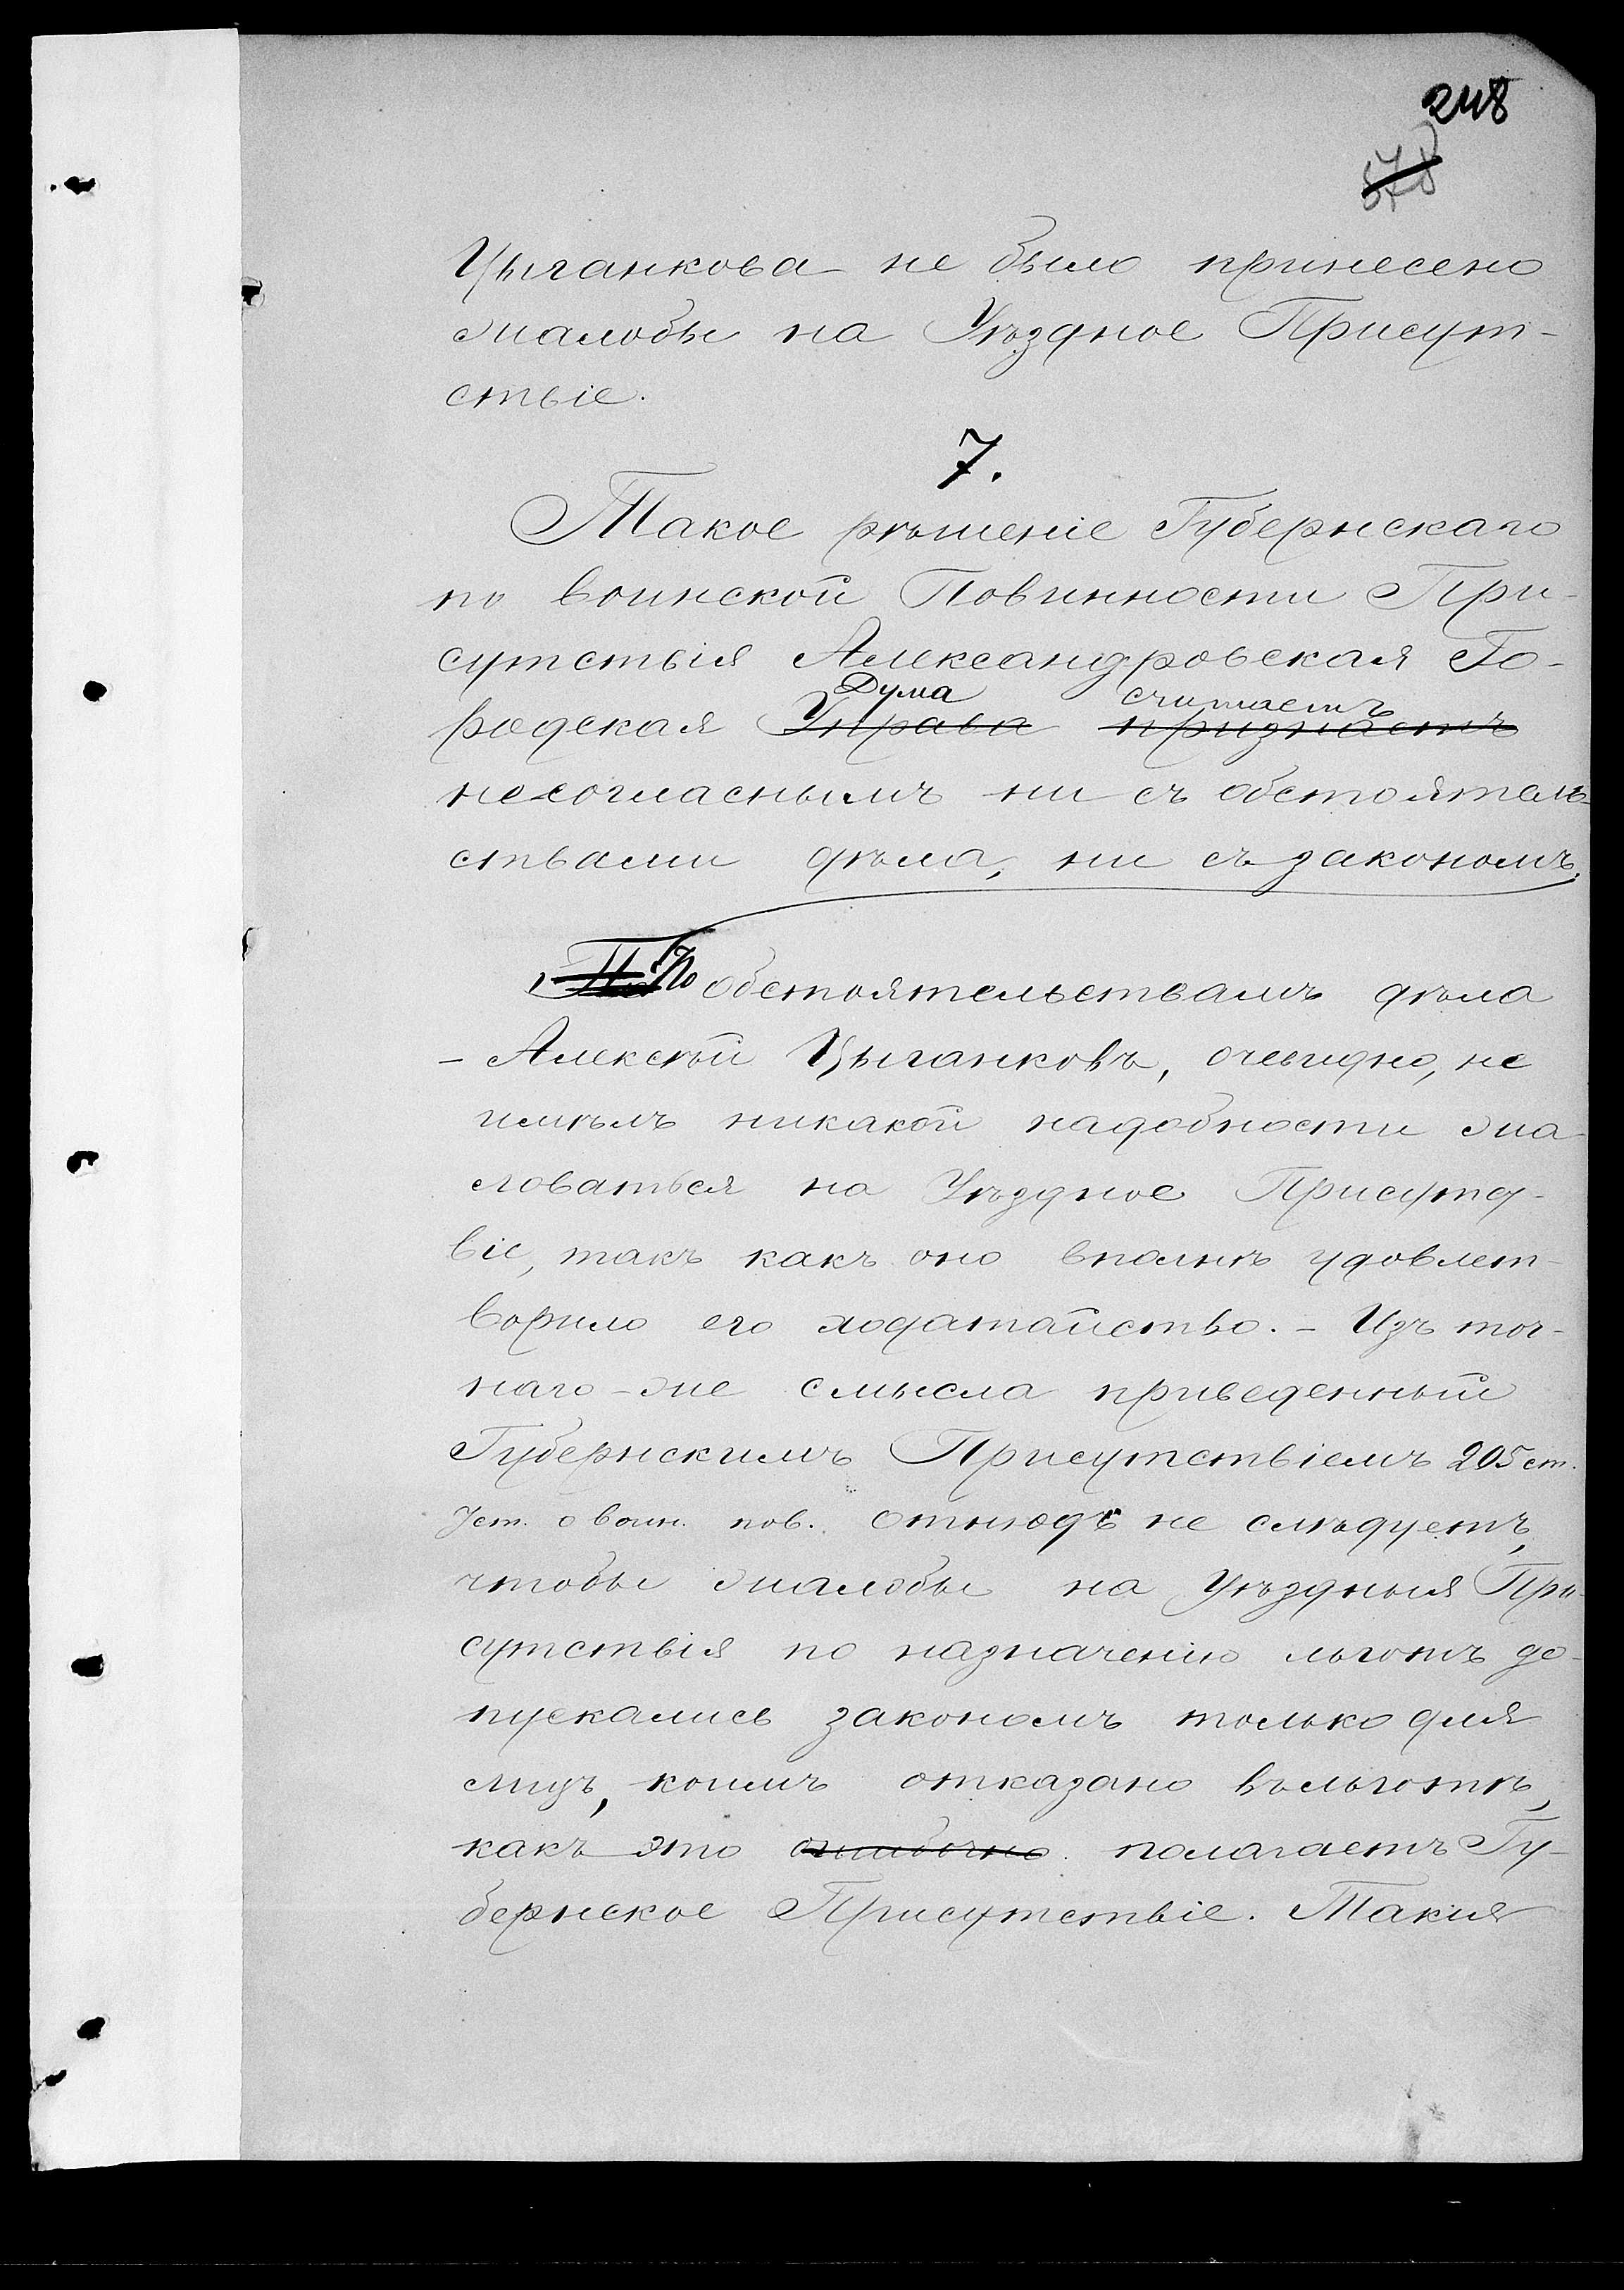 248
578
Цыганкова не было принесено
жалобы на Уѣздное Присут-
ствіе.
7.
Такое рѣшеніе Губернскаго
по воинской Повинности При-
сутствія Александровская Го-
Дума считаетъ
родская Управа признаетъ
несогласнымъ ни съ обстоятель-
ствами дѣла, ни съ закономъ.
По обстоятельствамъ дѣла
- Алексѣй Цыганковъ, очевидно, не
имѣлъ никакой надобности жа-
ловаться на Уѣздное Присутст-
віе, такъ какъ оно вполнѣ удовлет-
ворило его ходатайство. - Изъ точ-
наго-же смысла приведенный
Губернскимъ Присутствіемъ 205 ст.
Уст. о воин. пов. отнюдь не слѣдуетъ,
чтобы жалобы на Уѣздныя При-
сутствія по назначенію льготъ до-
пускались закономъ только для
лицъ, коимъ отказано въ льготѣ,
какъ это ошибочно полагаетъ Гу-
бернское Присутствіе. Такія